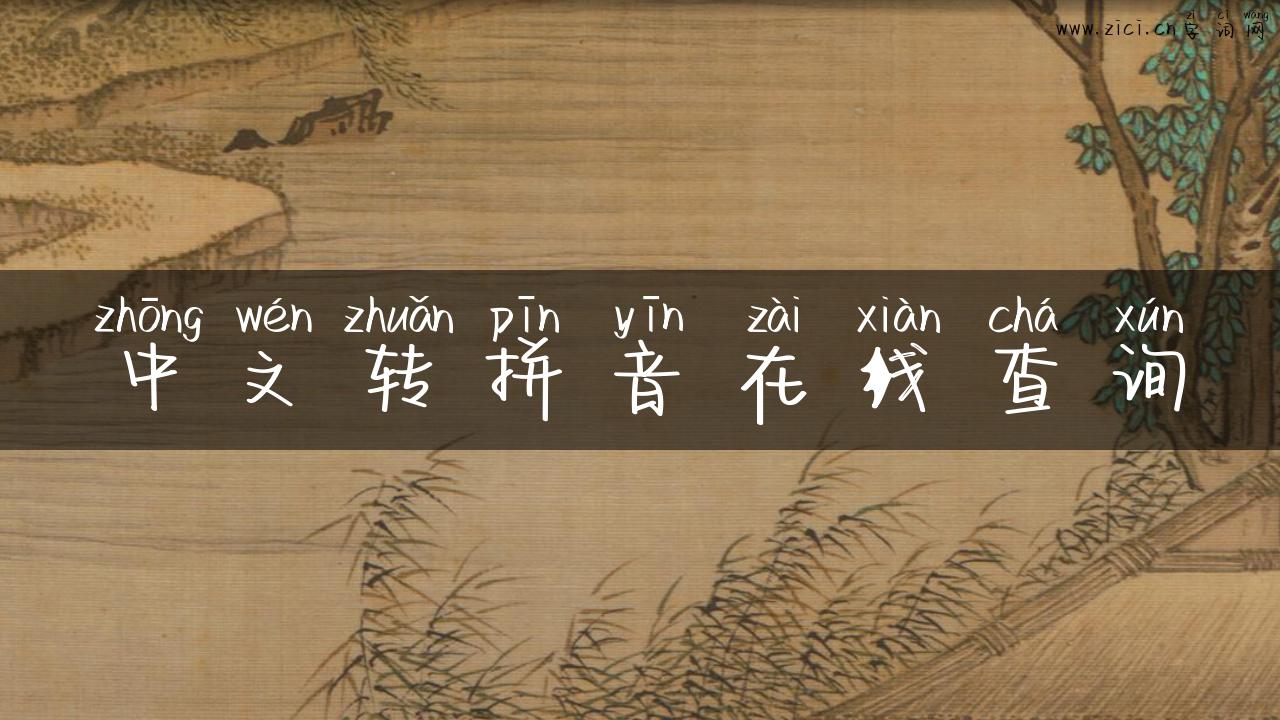 zì cí wǎng
www.zici.cn字词网
zhōng wén zhuǎn pīn yīn zài xiàn chá xún
中文转拼音在线查询